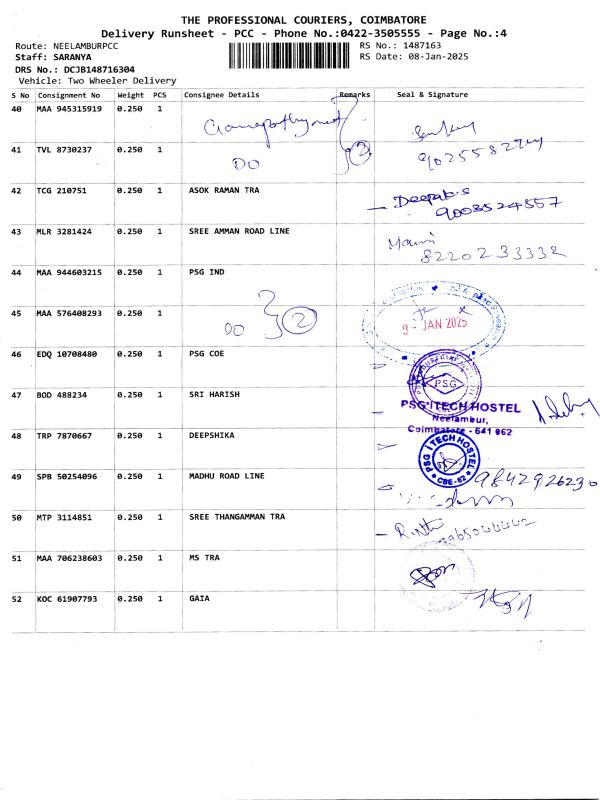 THE PROFESSIONAL COURIERS, COIMBATORE
Delivery Runsheet - PCC - Phone No.:0422-3505555 - Page No.:4
Route: NEELAMBURPCC RS No.: 1487163
Staff: SARANYA RS Date: 08-Jan-2025
DRS No.: DCJB148716304
Vehicle: Two Wheeler Delivery
S No Consignment No Weight PCS Consignee Details Remarks Seal & Signature
40 MAA 945315919 0.250 1
41 TVL 8730237 0.250 1 DO 2
42 TCG 210751 0.250 1 ASOK RAMAN TRA Deepak.s
9003524557
43 MLR 3281424 0.250 1 SREE AMMAN ROAD LINE
8220233332
44 MAA 944603215 0.250 1 PSG IND
45 MAA 576408293 0.250 1 DO 2 9- JAN 2025
46 EDQ 10708480 0.250 1 PSG COE PSG
47 BOD 488234 0.250 1 SRI HARISH PSG ITECH HOSTEL
Neelambur,
Coimbatore - 641 062
48 TRP 7870667 0.250 1 DEEPSHIKA PSG ITECH HOSTEL
CBE-62
49 SPB 50254096 0.250 1 MADHU ROAD LINE 9842926230
50 MTP 3114851 0.250 1 SREE THANGAMMAN TRA
51 MAA 706238603 0.250 1 MS TRA
52 KOC 61907793 0.250 1 GAIA